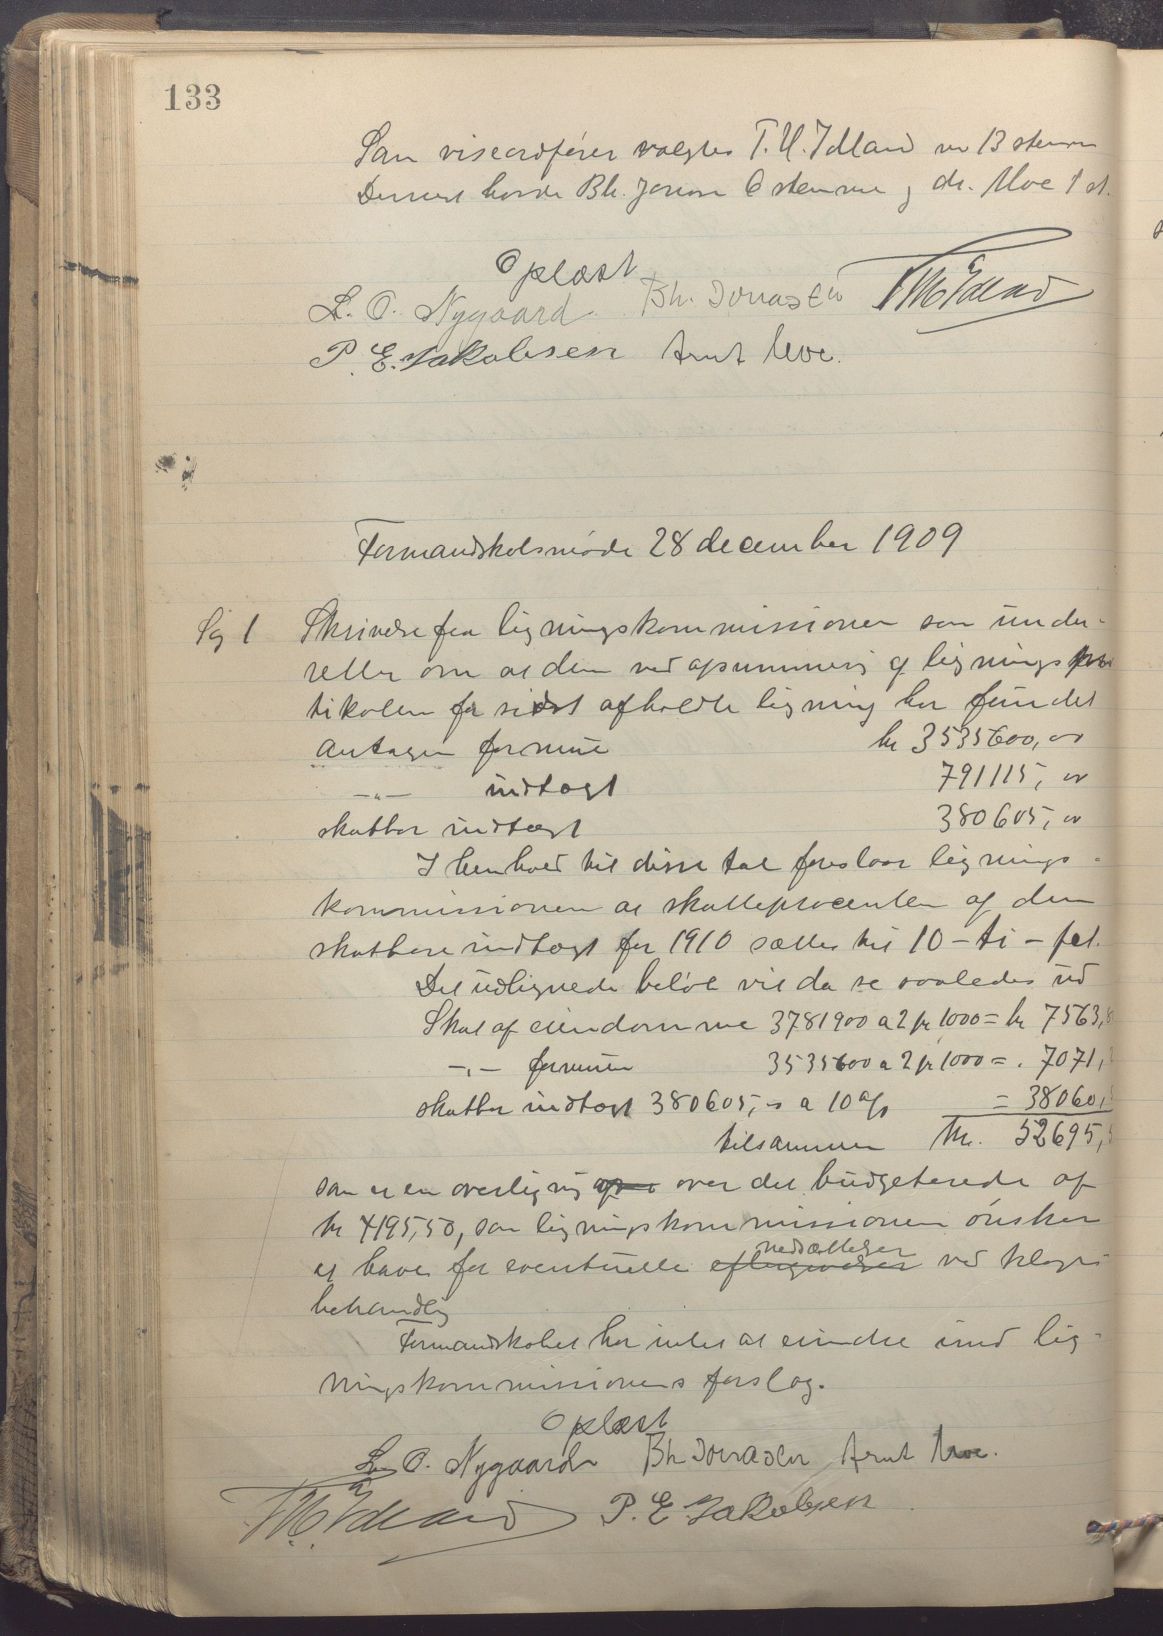 133
Som viseordfører valgtes T. M. Idland m 13 stemmer
Dernest havde Bh. Jonasen 6 stemmer, dr. Moe 1 st.
Oplæst
L. O. Nygaard. Bh. Jonasen TM Idland
P. E. Jakobsen Arnt Moe.
Formandskabsmøde 28 december 1909
Sag 1 Skrivelse fra ligningskommissionen som under-
retter om at den ved opsummering af ligningspro
tikolen for sidst afholdte ligning har fundet
antagen formue kr 3535600, 00
—„— indtægt 791115, 00
skatbar indtægt 380605, 00
I henhold til disse tal foreslaar lignings-
kommissionen at skatteprocenten af den
skatbare indtægt for 1910 sættes til 10 - ti - pct.
Det udlignede beløb vil da se saaledes ud
Skat af eiendomme 3781900 a 2 pr 1000 = kr 7563,8
—„— formue 3535600 a 2 pr 1000 = . 7071,
skatbar indtægt 380605, - a 10 % = 38060,
tilsammen Kr. 52695,
som er en overligning over det budgeterede af
kr 4195,50, som ligningskommissionen ønsker
at have for eventuelle nedsættelser ved klage-
behandling
Formandskabet har intet at erindre imod lig-
ningskommissionens forslag.
Oplæst
L. O. Nygaard Bh Jonasen Arnt Moe.
TM Idland P. E. Jakobsen